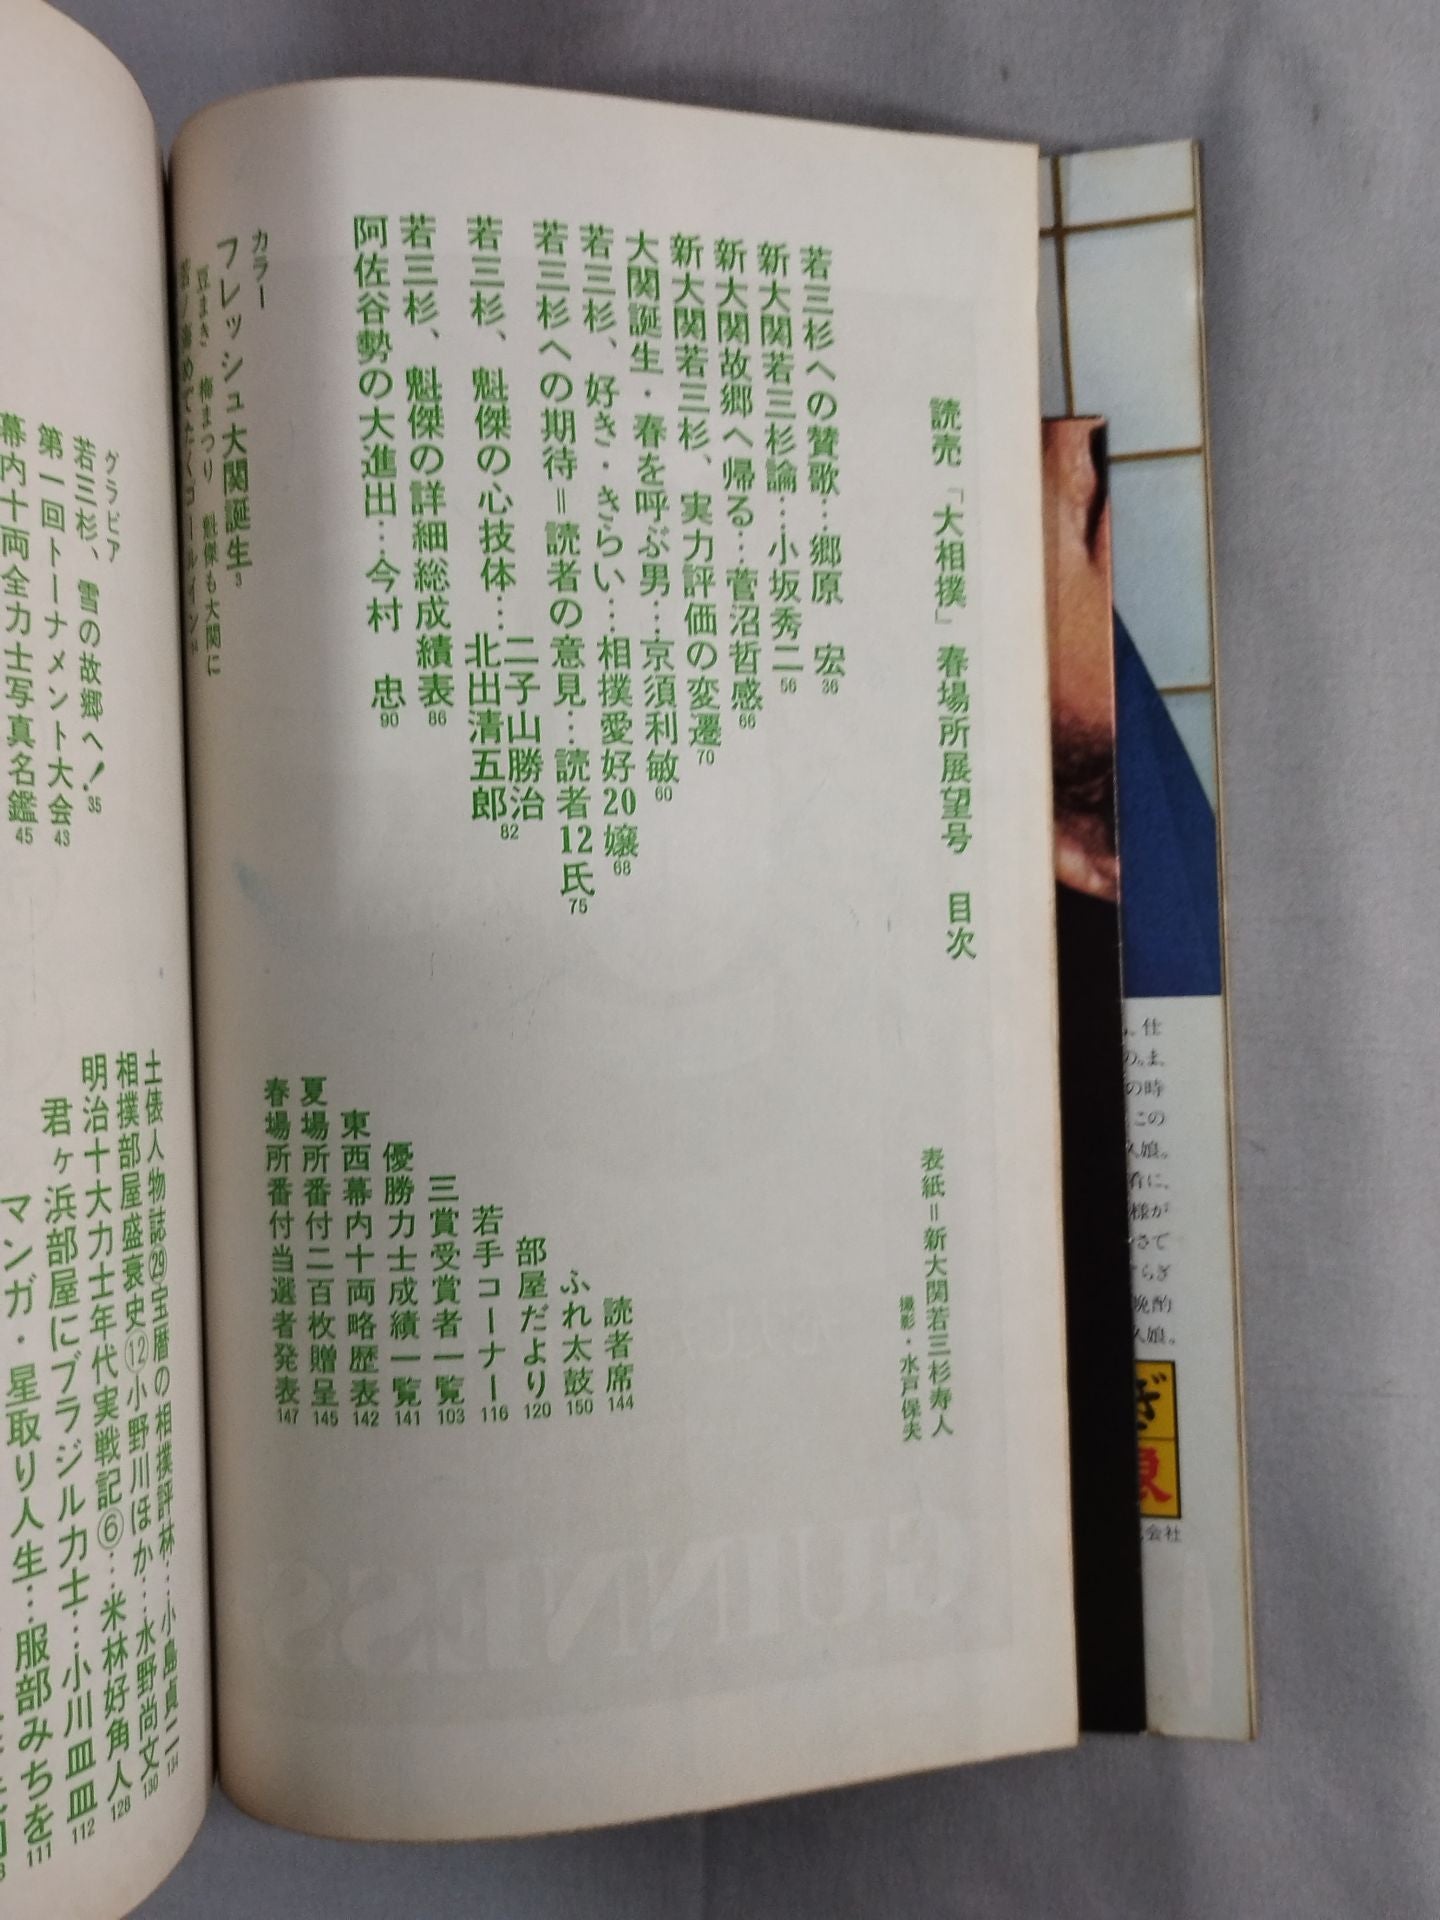 読売「大相撲」春場所展望号 目次
表紙＝新大関若三杉寿人
撮影・水戸保夫
若三杉への賛歌…郷原 宏 36
新大関若三杉論…小坂秀二 56
新大関故郷へ帰る…菅沼哲感 66
新大関若三杉、実力評価の変遷 70
大関誕生・春を呼ぶ男…京須利敏 60
若三杉、好き・きらい…相撲愛好20嬢 68
若三杉への期待＝読者の意見…読者12氏 75
若三杉、魁傑の心技体…二子山勝治 北出清五郎 82
若三杉、魁傑の詳細総成績表 86
阿佐谷勢の大進出…今村 忠 90
読者席 144
ふれ太鼓 150
部屋だより 120
若手コーナー 116
三賞受賞者一覧 103
優勝力士成績一覧 141
東西幕内十両略歴表 142
夏場所番付二百枚贈呈 145
春場所番付当選者発表 147
カラー
フレッシュ大関誕生 3
豆まき 梅まつり 魁傑も大関に
めでたくゴールイン
グラビア
若三杉、雪の故郷へ！ 35
第一回トーナメント大会 43
幕内十両全力士写真名鑑 45
土俵人物誌㉙宝暦の相撲評林…小島貞二 134
相撲部屋盛衰史⑫小野川ほか…水野尚文 130
明治十大力士年代実戦記⑥…米林好角人 128
君ヶ浜部屋にブラジル力士…小川皿皿 112
マンガ・星取り人生…服部みちを 111
仕
の時
この
娘。
様が
晩酌
娘。
会社
GUINNESS